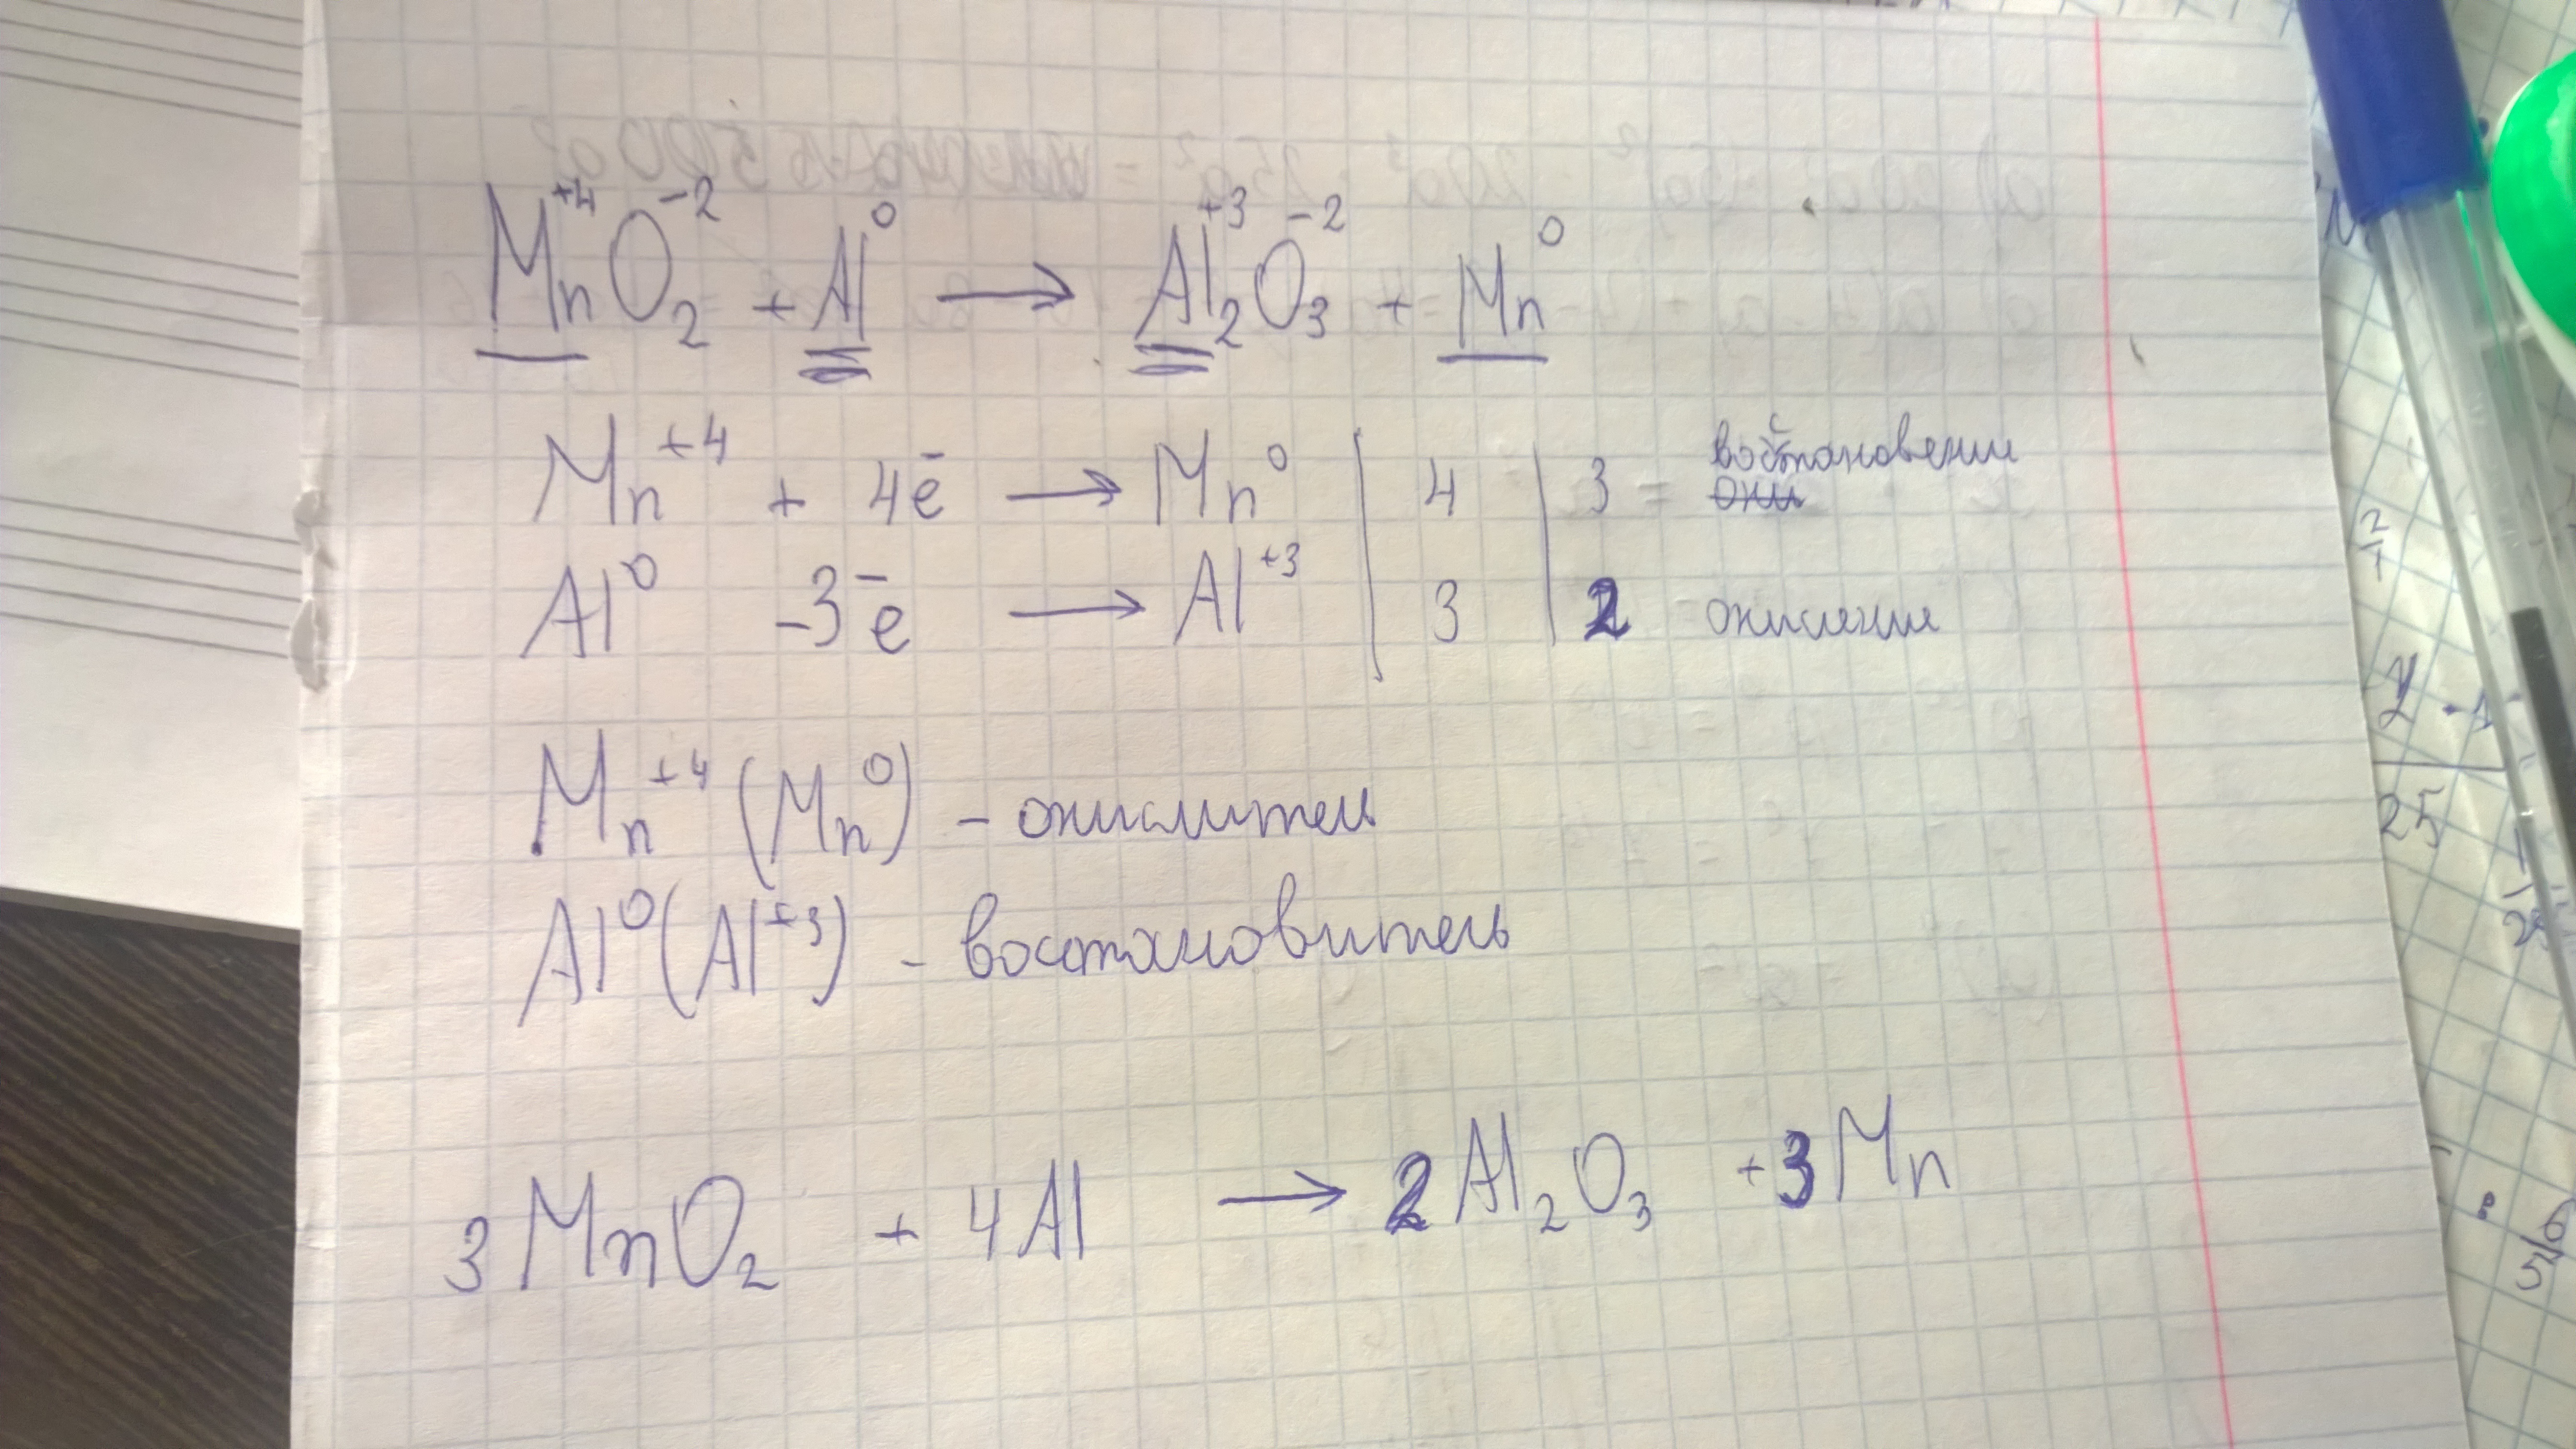 Mn⁺⁴O₂⁻² + Al⁰ → Al₂⁺³O₃⁻² + Mn⁰
Mn⁺⁴ + 4ē → Mn⁰ | 4 | 3 = восстановение
Al⁰ -3ē → Al⁺³ | 3 | 2 - окисление
Mn⁺⁴ (Mn⁰) - окислитель
Al⁰ (Al⁺³) - востановитель
3MnO₂ + 4Al → 2Al₂O₃ + 3Mn
25